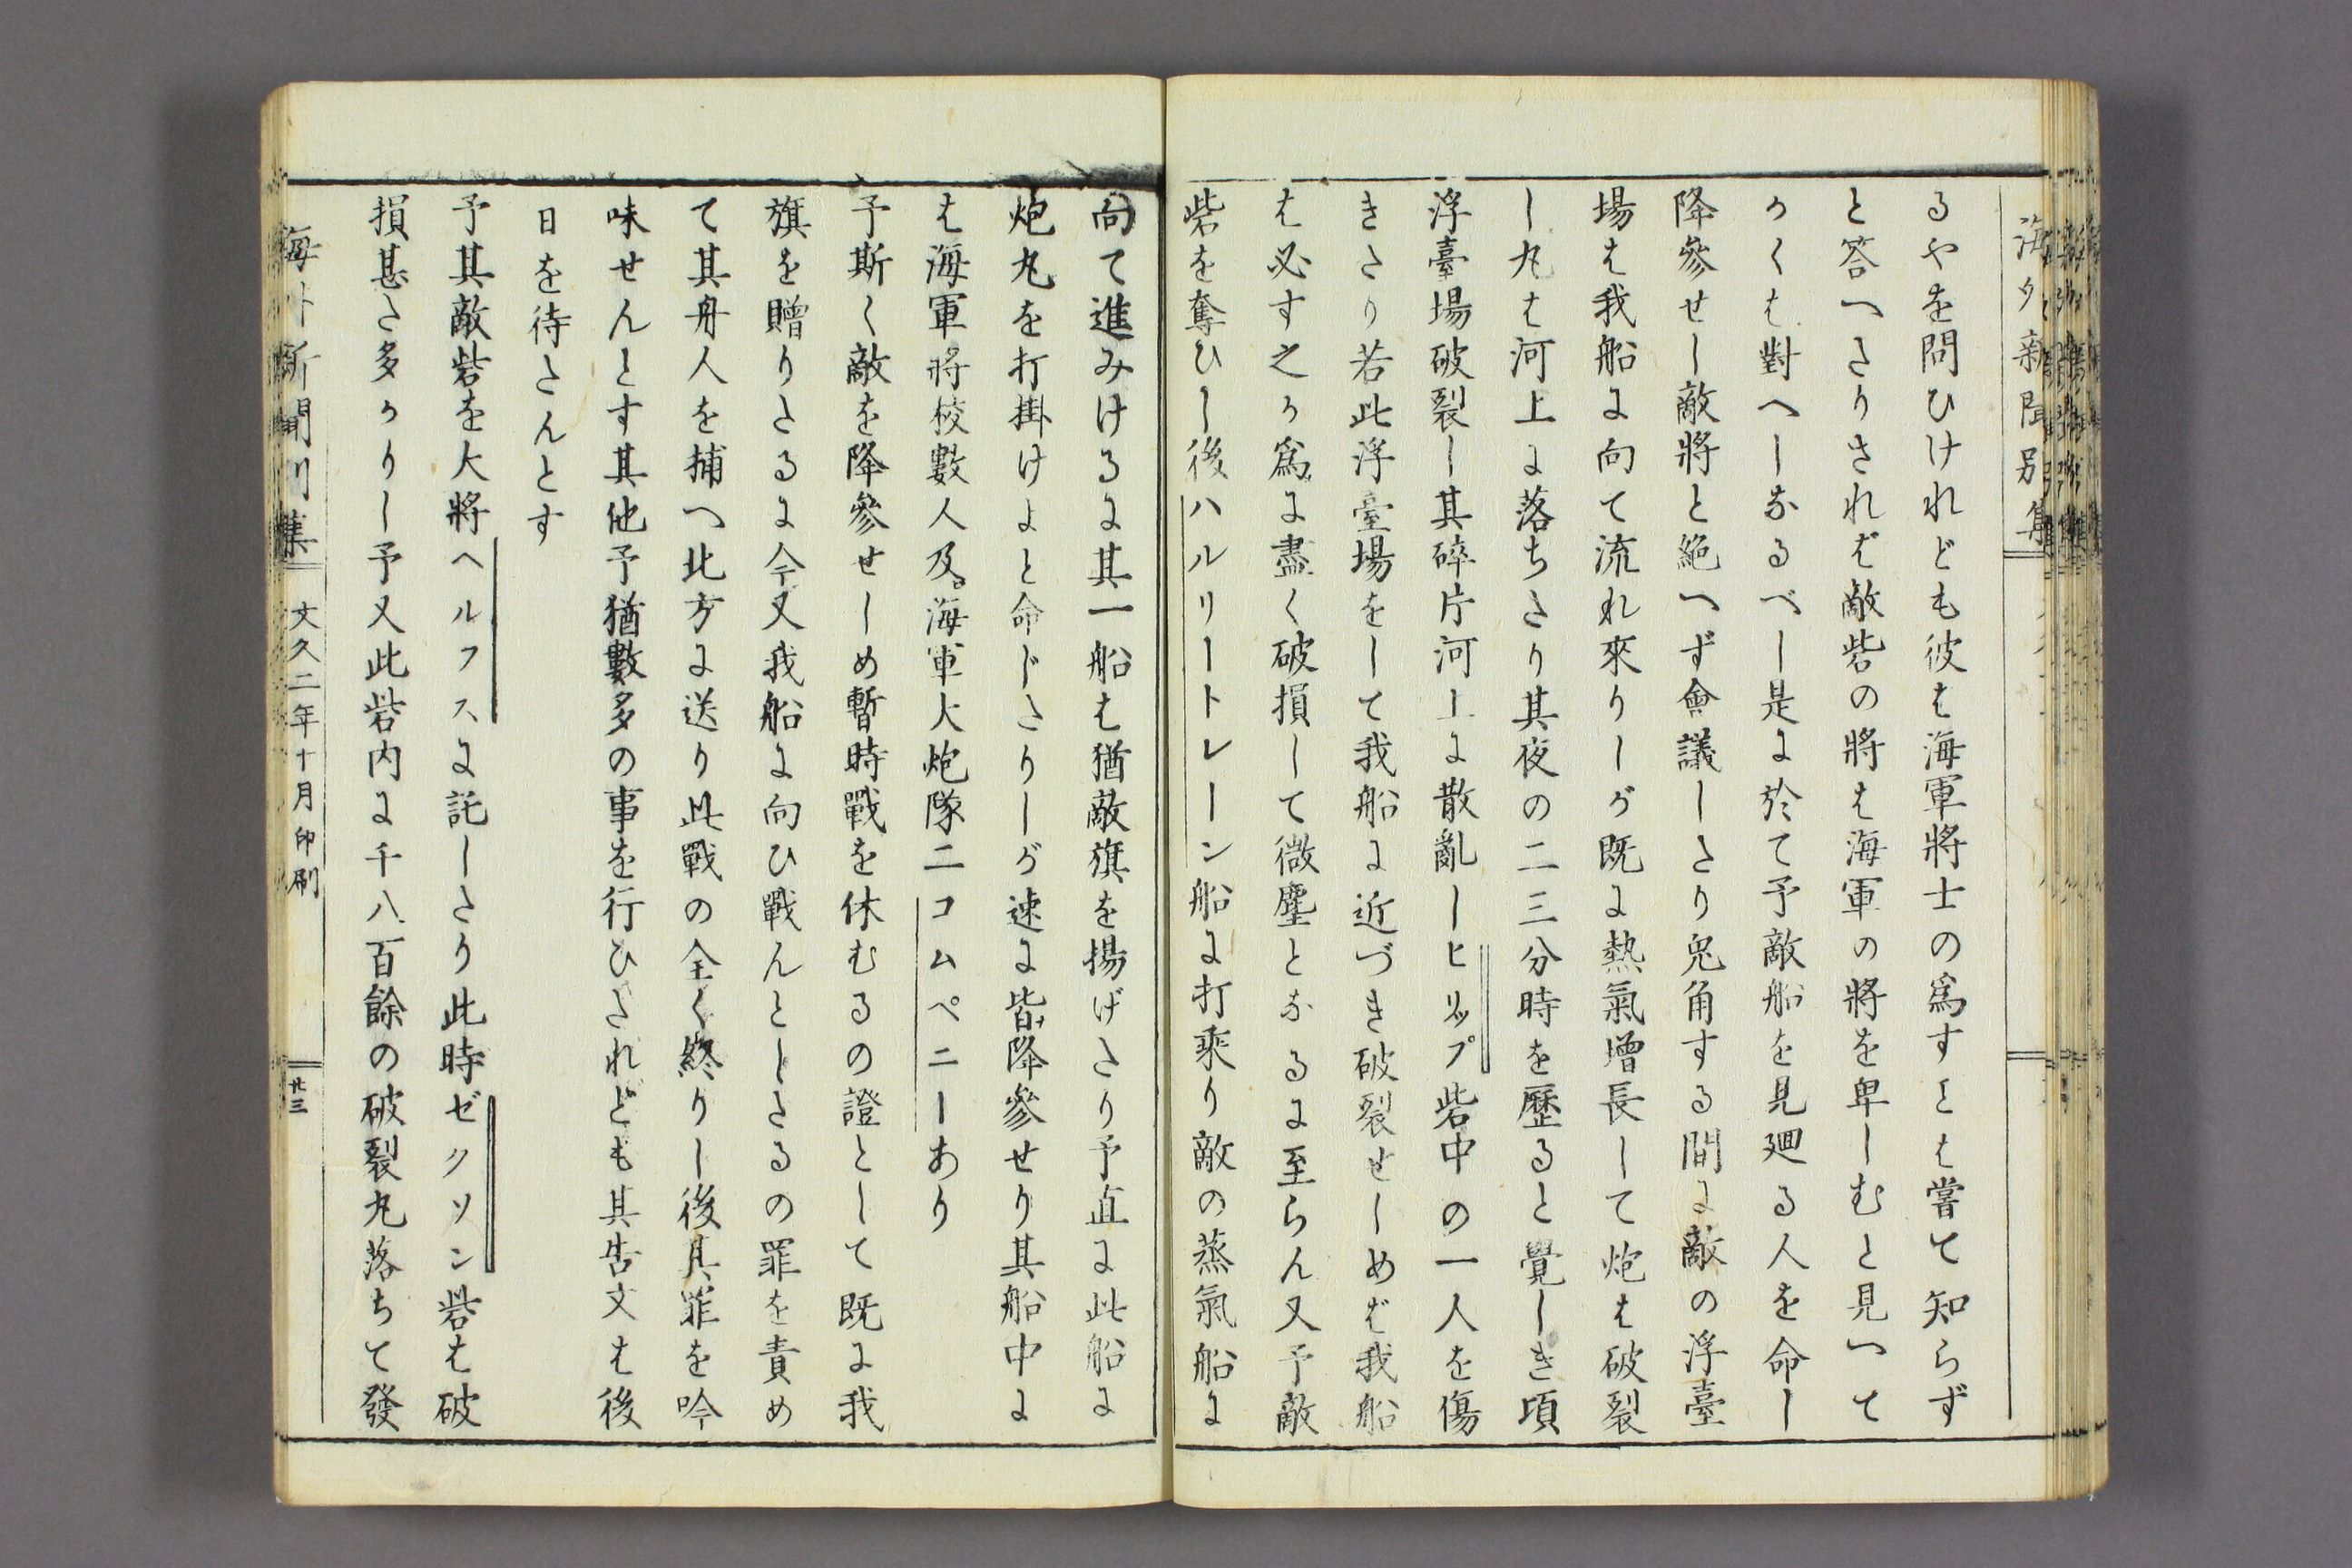 海外新聞別集
るやを問ひけれども彼は海軍將士の爲すとは嘗て知らず
と答へたりされば敵砦の將は海軍の將を卑しむと見へて
かくは對へしなるべし是に於て予敵船を見廻る人を命し
降參せし敵將と絶へず會議したり兎角する間に敵の浮臺
場は我船に向て流れ來りしが既に熱氣增長して炮は破裂
し丸は河上に落ちたり其夜の二三分時を歷ると覺しき頃
浮臺場破裂し其碎片河上に散亂しヒリップ砦中の一人を傷
きたり若此浮臺場をして我船に近づき破裂せしめば我船
は必す之か爲に盡く破損して微塵となるに至らん又予敵
砦を奪ひし後ハルリートレーン船に打乘り敵の蒸氣船に
向て進みけるに其一船は猶敵旗を揚げたり予直に此船に
炮丸を打掛けよと命じたりしが速に皆降參せり其船中に
は海軍將校數人及海軍大炮隊二コムペニーあり
予斯く敵を降參せしめ暫時戰を休むるの證として既に我
旗を贈りたるに今又我船に向ひ戰んとしたるの罪を責め
て其舟人を捕へ北方に送り此戰の全く終りし後其罪を吟
味せんとす其他予猶數多の事を行ひたれども其告文は後
日を待たんとす
予其敵砦を大將ヘルフスに託したり此時ゼクソン砦は破
損甚た多かりし予又此砦内に千八百餘の破裂丸落ちて發
海外新聞別集 文久二年十月印刷 廿三